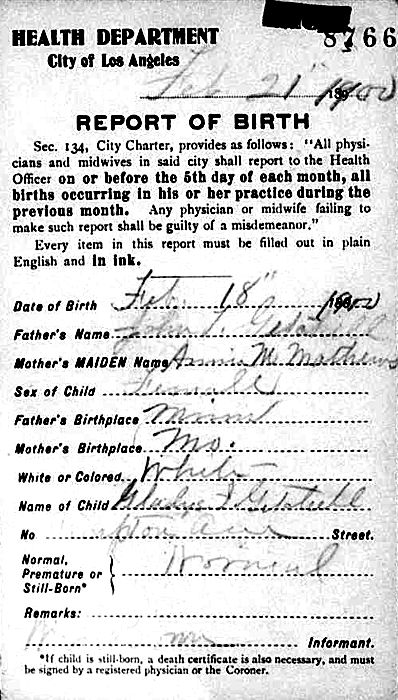 8766
HEALTH DEPARTMENT
City of Los Angeles
Feb 21" 1900
REPORT OF BIRTH
Sec. 134, City Charter, provides as follows: "All physi-
cians and midwives in said city shall report to the Health
Officer on or before the 5th day of each month, all
births occurring in his or her practice during the
previous month. Any physician or midwife failing to
make such report shall be guilty of a misdemeanor."
Every item in this report must be filled out in plain
English and in ink.
Date of Birth Feb. 18" 1900
Father's Name John
Mother's MAIDEN Name Annie M. Mathews
Sex of Child Female
Father's Birthplace
Mother's Birthplace Mo.
White or Colored White
Name of Child
No Ave Street.
Normal, Premature or Still-Born* Normal
Remarks:
Informant.
*If child is still-born, a death certificate is also necessary, and must
be signed by a registered physician or the Coroner.